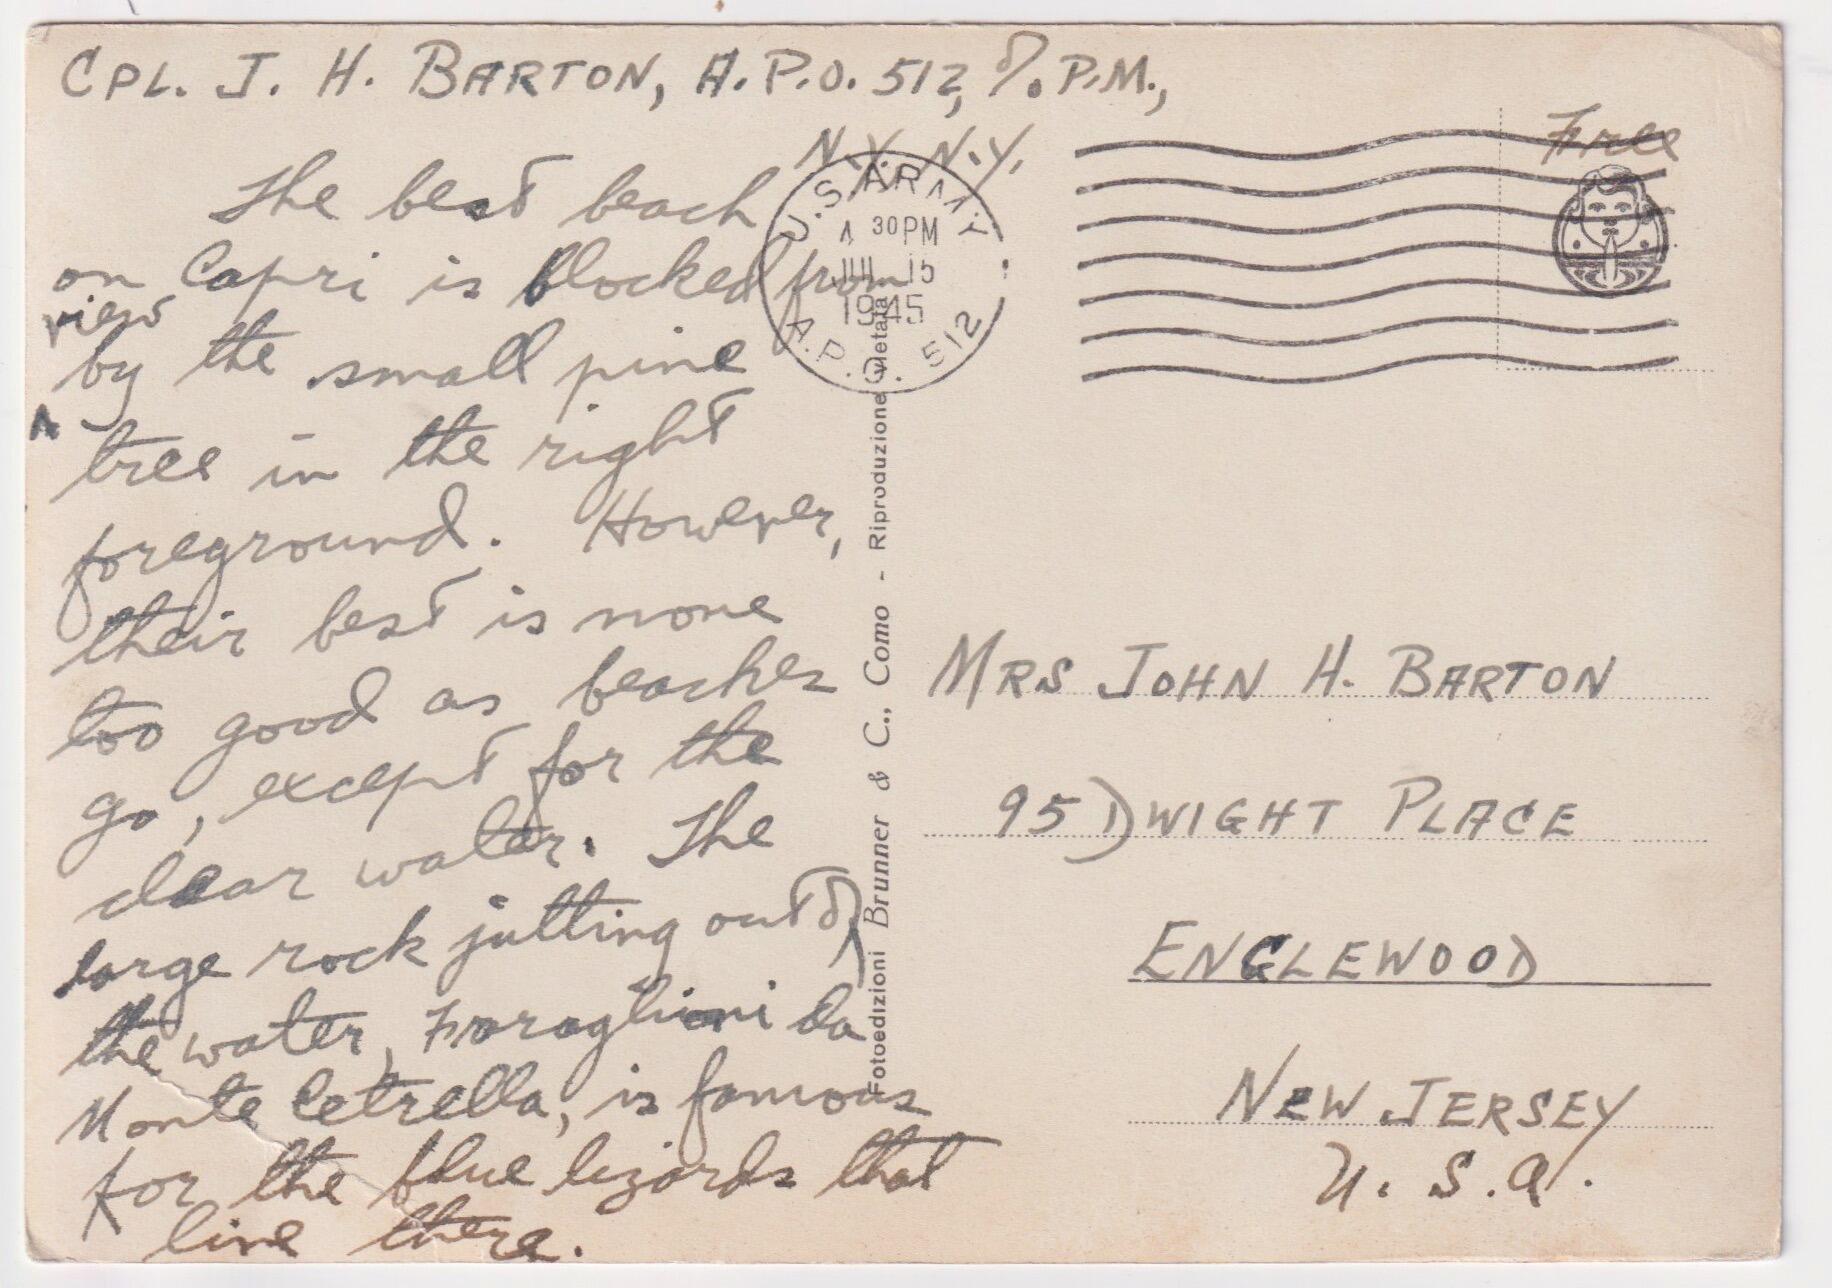 CPL. J. H. BARTON, A.P.O. 512, % P.M.,
N.Y. N.Y.
Free
The best beach
on Capri is blocked from
view
by the small pine
^
tree in the right
foreground. However,
their best is none
too good as beaches
go, except for the
clear water. The
large rock jutting out of
the water, Faraglioni da
Monte Cetrella, is famous
for the blue lizards that
live there.
U.S. ARMY
30 PM
JUL 15
1945
A.P.O. 512
Fotoedizioni Brunner & C., Como - Riproduzione Vietata
MRS JOHN H. BARTON
95 DWIGHT PLACE
ENGLEWOOD
NEW JERSEY
U.S.A.